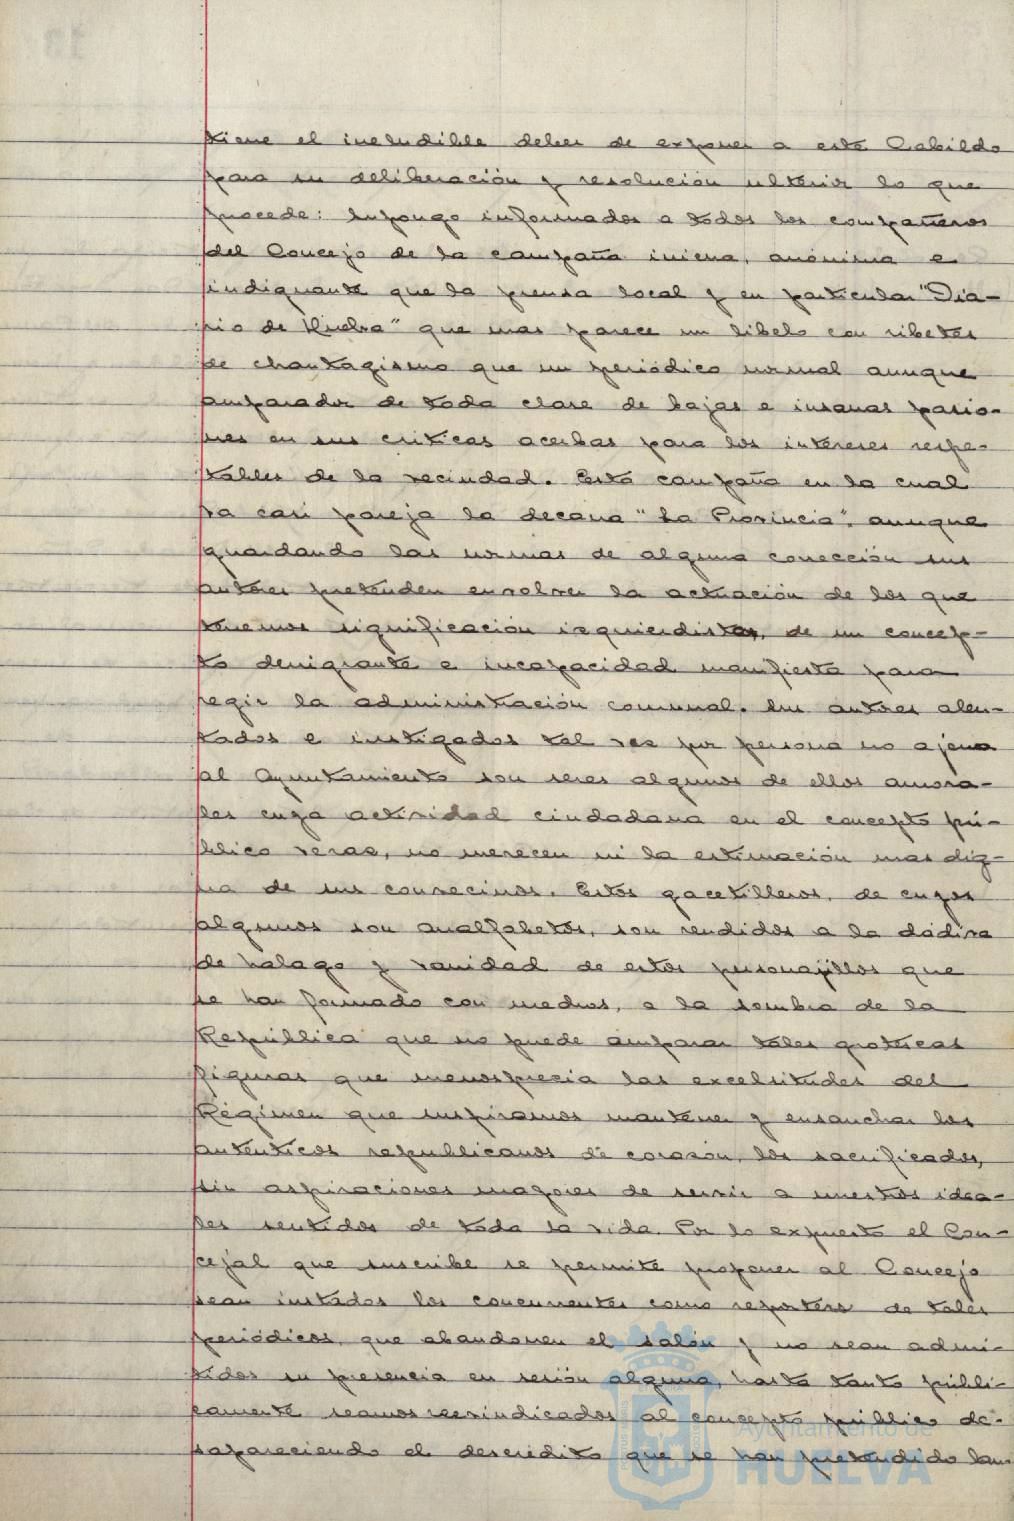 tiene el ineludible deber de exponer a este Cabildo
para su deliberación y resolución ulterior lo que
procede: Supongo informados a todos los compañeros
del Concejo de la campaña inicua, anónima e
indignante que la prensa local y en particular "Dia-
rio de Huelva" que mas parece un libelo con ribetes
de chantagismo que un periódico normal aunque
amparador de toda clase de bajas e insanas pasio-
nes en sus criticas acerbas para los intereses respe-
tables de la vecindad. Esta campaña en la cual
va casi pareja la decana "La Provincia", aunque
guardando las normas de alguna corrección sus
autores pretenden envolver la actuación de los que
tenemos significación izquierdista, de un concep-
to denigrante e incapacidad manifiesta para
regir la administración comunal. Sus autores alen-
tados e instigados tal vez por persona no ajena
al Ayuntamiento son seres algunos de ellos amora-
les cuya actividad ciudadana en el concepto pú-
blico veraz, no merecen ni la estimación mas dig-
na de sus convecinos. Estos gacetilleros, de cuyos
algunos son analfabetos, son rendidos a la dádiva
de halago y vanidad de estos personajillos que
se han formado con medros, a la sombra de la
República que no puede amparar tales grotescas
figuras que menosprecia las excelsitudes del
Régimen que suspiramos mantener y ensanchar los
auténticos republicanos de corazón, los sacrificados,
sin aspiraciones mayores de servir a nuestros idea-
les sentidos de toda la vida. Por lo expuesto el Con-
cejal que suscribe se permite proponer al Concejo
sean instados los concurrentes como reporters de tales
periódicos, que abandonen el salón y no sean admi-
tidos su presencia en sesión alguna, hasta tanto públi-
camente seamos reevindicados al concepto público de-
sapareciendo el descrédito que se han pretendido lan-
Ayuntamiento de
HUELVA